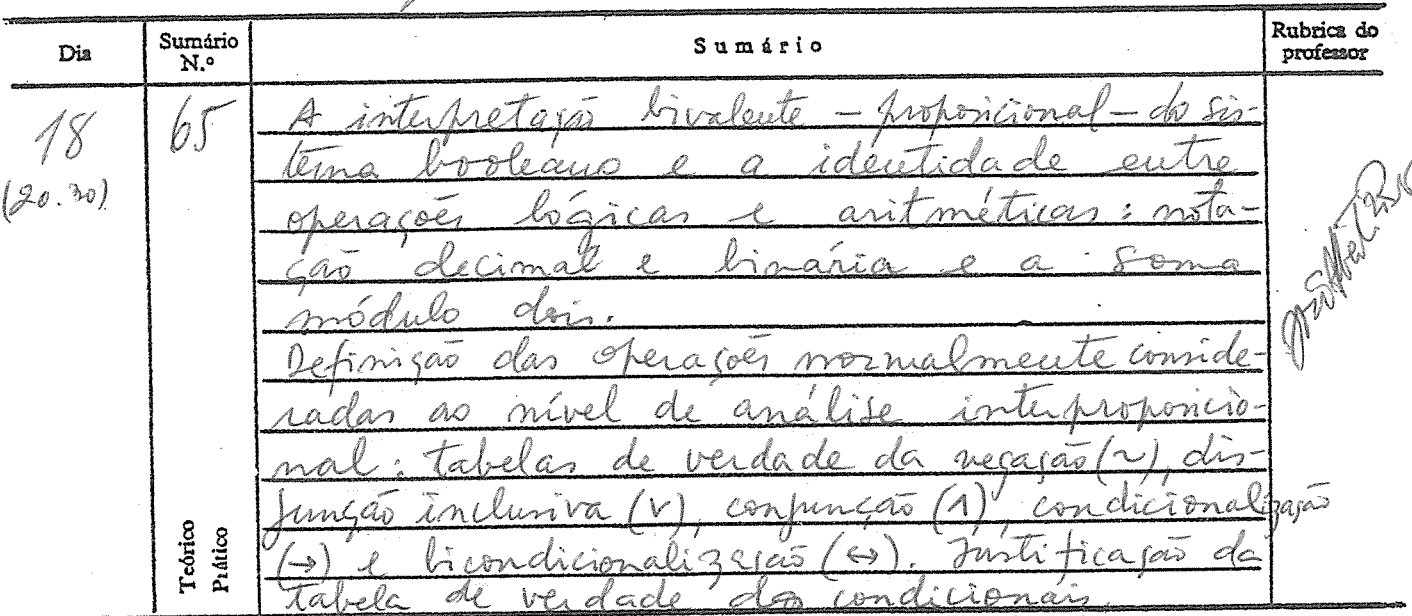 Dia Sumário N.º Sumário Rubrica do professor
18 65 A interpretação bivalente – proposicional – do sis-
(20.30) tema booleano e a identidade entre
operações lógicas e aritméticas: nota-
ção decimal e binária e a soma
módulo dois.
Definição das operações normalmente conside-
radas ao nível de análise interproposicio-
nal: tabelas de verdade da negação (~), dis-
junção inclusiva (v), conjunção (∧), condicionalização
(→) e bicondicionalização (↔). Justificação da
tabela de verdade dos condicionais.
Teórico
Prático